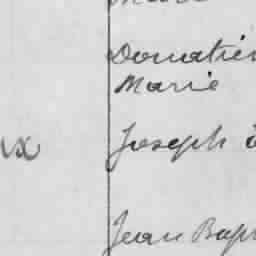 Donatien
Marie
Joseph
Jean Bap